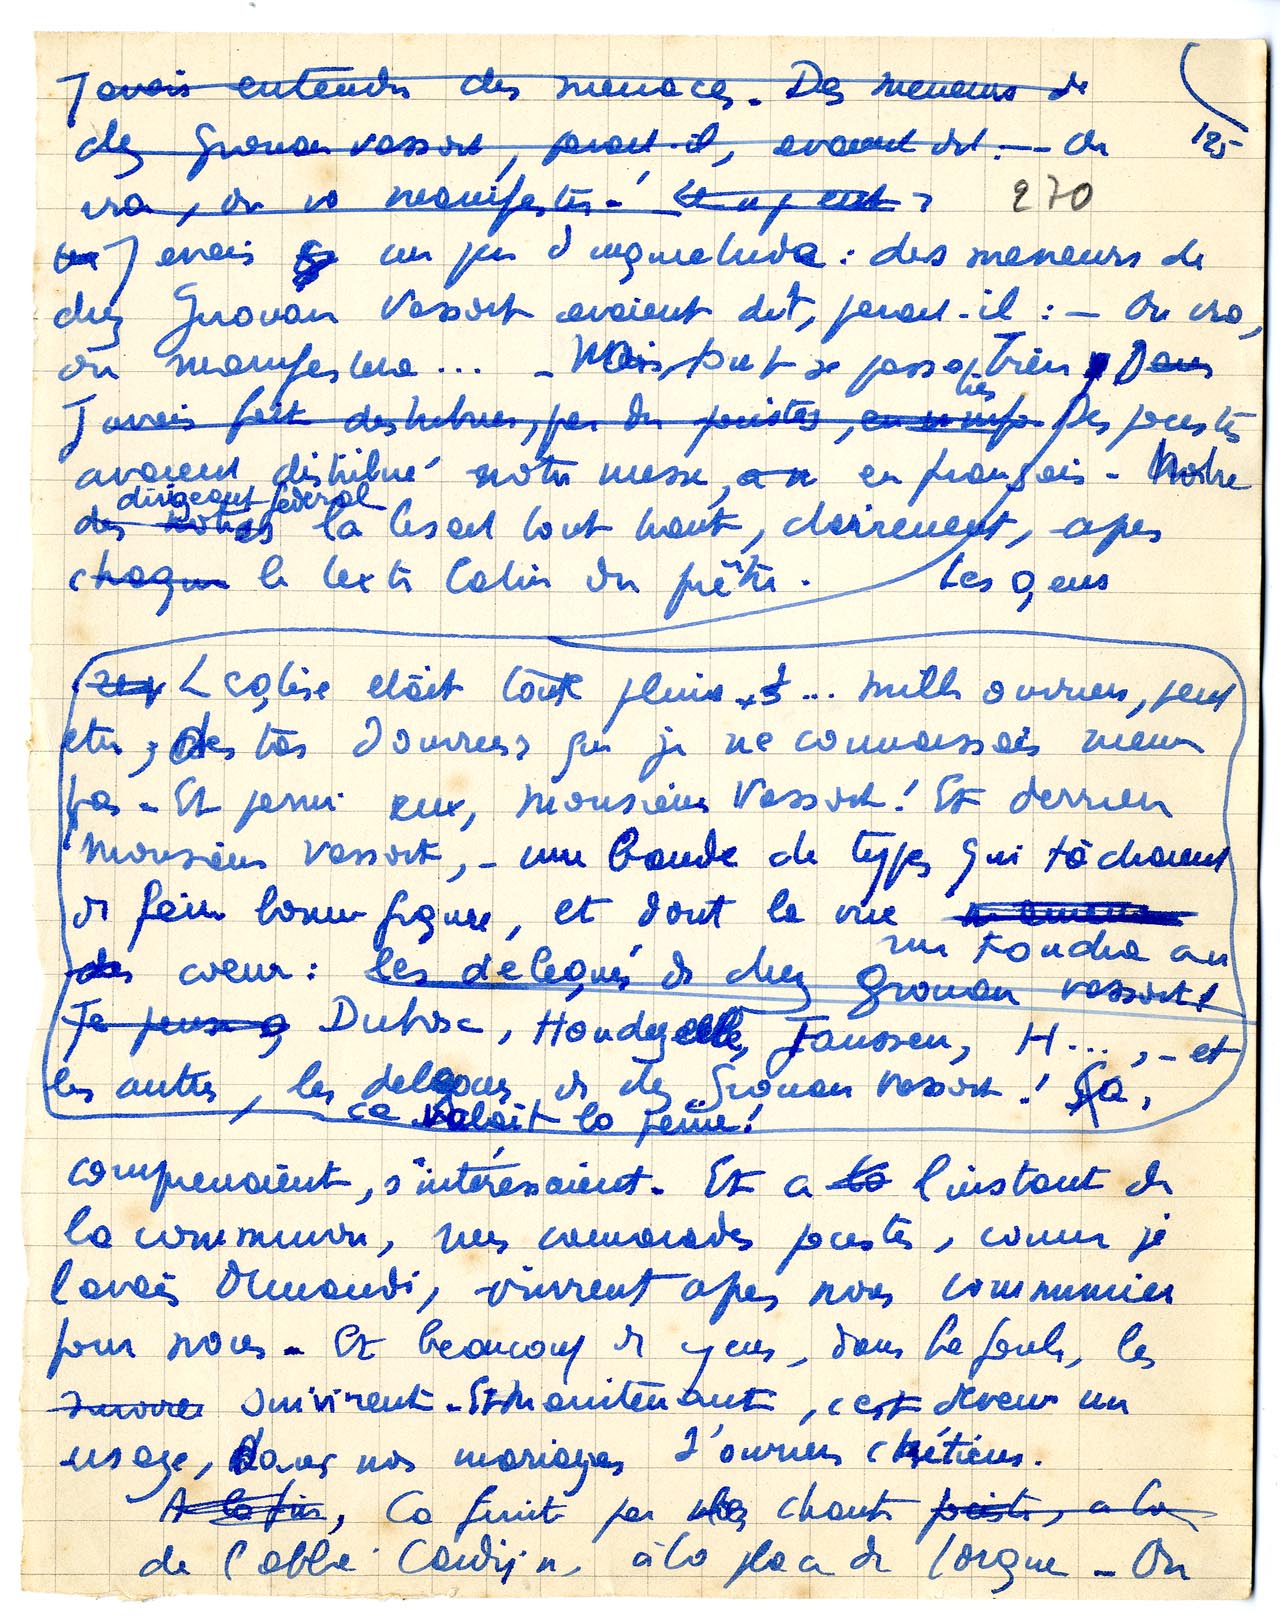 J'avais entendu des menaces. Des meneurs de
chez Gronan Vassort, parait-il, avaient dit : — On
125
ira, on va manifester !
270
J'avais un peu d'inquiétude : des meneurs de
chez Gronan Vassort avaient dit, parait-il : — On ira,
on manifestera ... — Mais tout se passa très bien. Dans
J'avais fait distribuer, par des jocistes, Des jocistes
avaient distribué notre messe, en français — Notre
dirigeant fédéral
des la lisait tout haut, clairement, après
chaque le texte latin du prêtre. Les gens
L'église était toute pleine ... mille ouvriers, peut
etre, des tas d'ouvriers que je ne connaissais meme
pas — Et parmi eux, Monsieur Vassort ! Et derrière
Monsieur Vassort, — une bande de types qui tâchaient
de faire bonne figure, et dont la vue
me toucha au
coeur : les délégués de chez Gronan Vassort !
Je pense Dubosc, Hondeg, Janssen, H..., — et
les autres, les délégués de chez Gronan Vassort ! Ça,
ça valait la peine !
comprenaient, s'intéressaient. Et a la l'instant de
la communion, mes camarades jocistes, comme je
l'avais demandé, vinrent apres nous communier
pour nous — Et beaucoup de gens, dans la foule, les
suivirent — Et maintenant, c'est devenu un
usage, dans nos mariages d'ouvriers chrétiens.
A la fin, Ca finit par des chants jocistes, a la
de l'abbé Cardijn, à la place de l'orgue — On